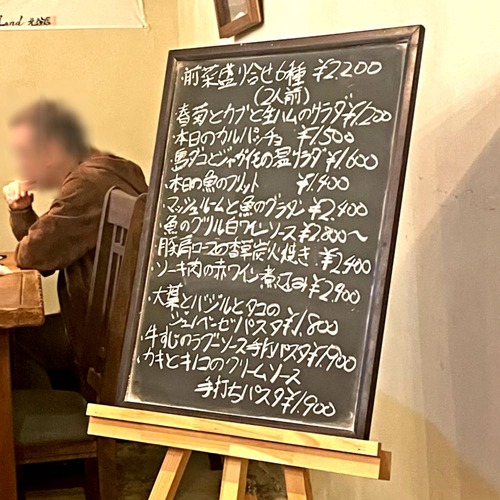 Land
・前菜盛り合せ6種 ¥2,200
(2人前)
春菊とカブと生ハムのサラダ¥1,200
・本日のカルパッチョ ¥1,500
・真ダコとジャガイモの温サラダ¥1,600
・本日の魚のフリット ¥1,400
・マッシュルームと魚のグラタン ¥2,400
・魚のグリル白ワインソース ¥2,800〜
・豚肩ロースの香草炭火焼き ¥2,400
・ソーキ肉の赤ワイン煮込み ¥2,900
・大葉とバジルとタコの
ジェノベーゼパスタ¥1,800
・牛すじのラグーソース手打パスタ¥1,900
・カキとキノコのクリームソース
手打ちパスタ¥1,900